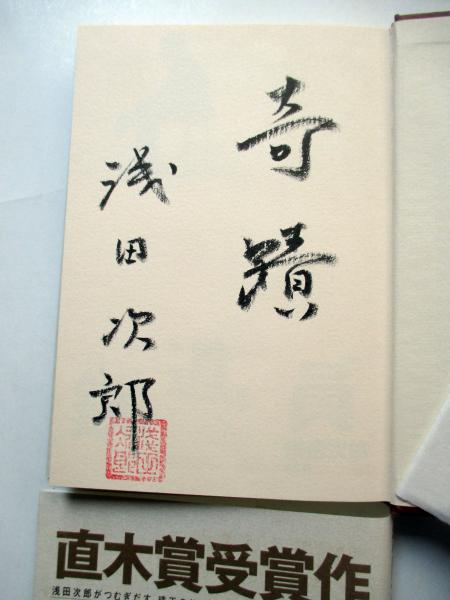 奇蹟
浅田次郎
直木賞受賞作
浅田次郎がつむぎだす